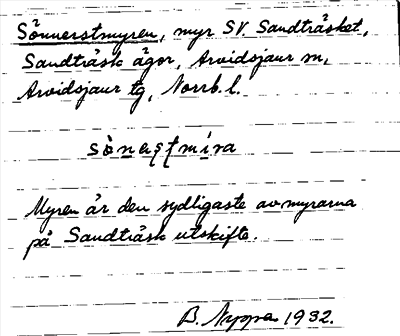 Sönnerstmyren, myr SV. Sandträsket,
Sandträsk ägor, Arvidsjaur sn,
Arvidsjaur tg, Norrb. l.
sònerstmíra
Myren är den sydligaste av myrarna
på Sandträsk utskifte.
B. 1932.